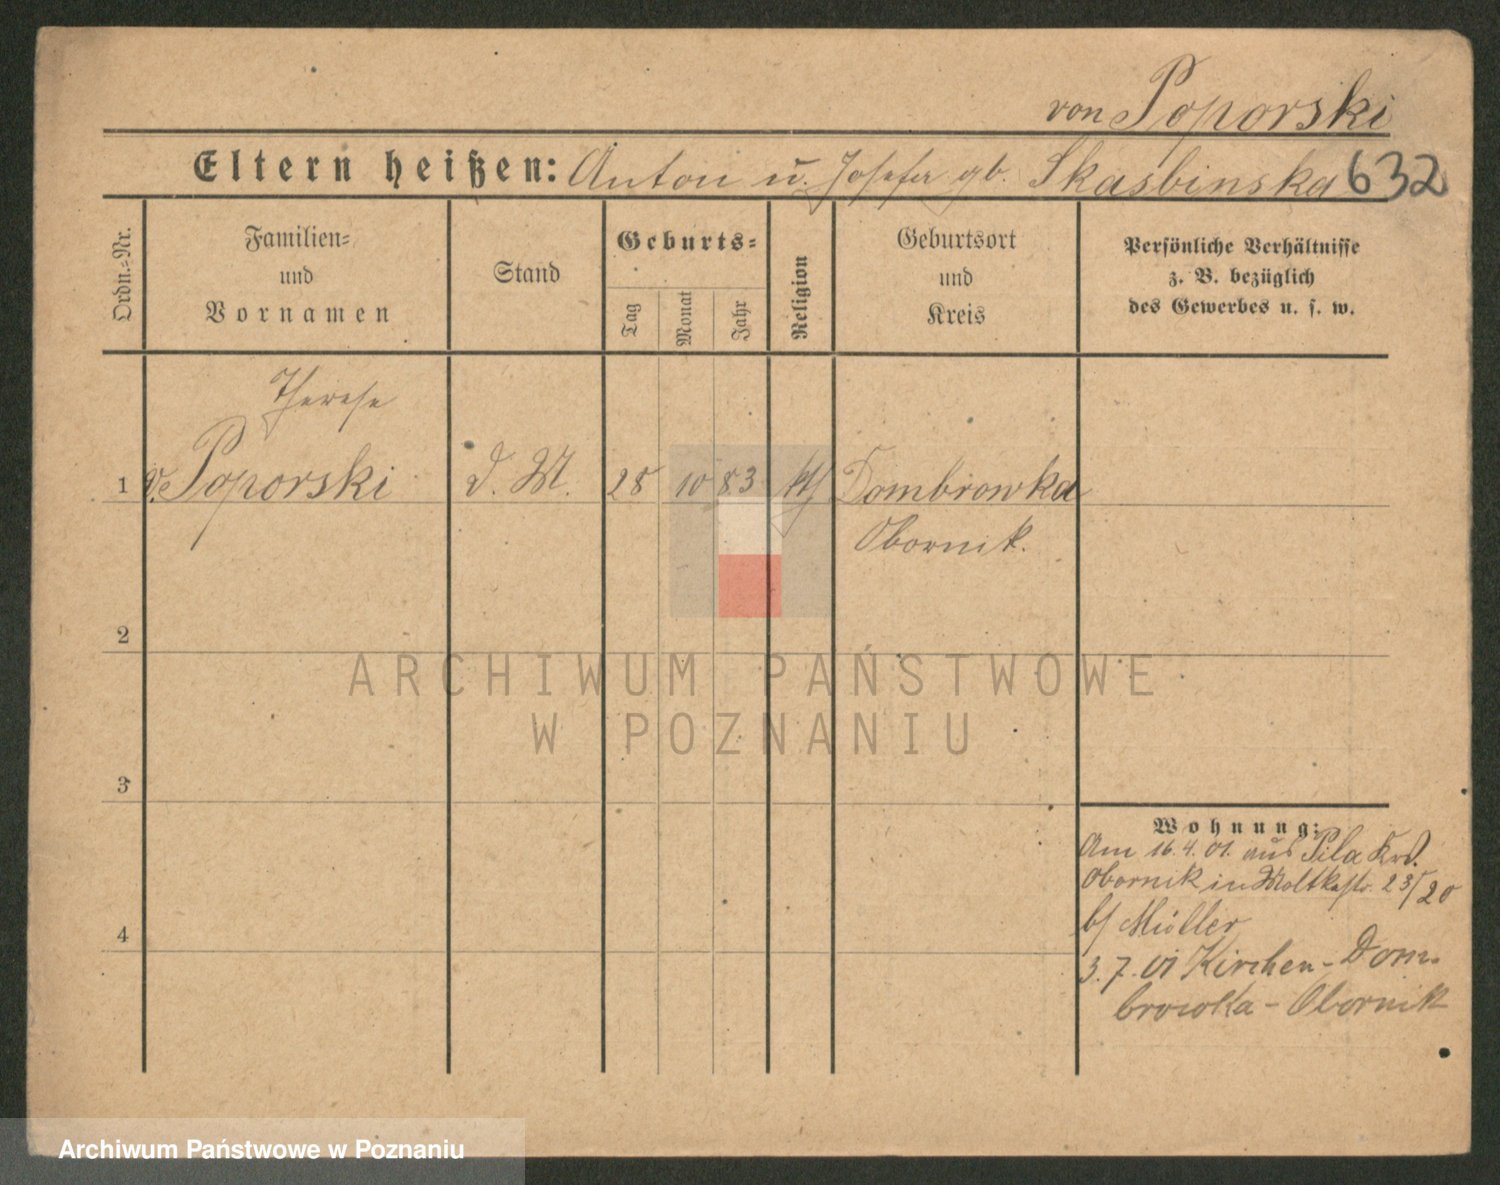 von Poporski
Eltern heißen: Anton u. Josefa gb. Skasbinska 632
Ordn.=Nr.
Familien=
und
Vornamen
Stand
Geburts=
Tag
Monat
Jahr
Religion
Geburtsort
und
Kreis
Persönliche Verhältnisse
z. B. bezüglich
des Gewerbes u. s. w.
Therese
1 v. Poporski d. M. 28 10 83 kth Dombrowka
Obornik.
2
3
4
Wohnung:
Am 16.4.01. aus Pila Krs.
Obornik in Moltkestr. 23/20
b/ Müller
3.7.01 Kirchen-Dom-
browka - Obornik
ARCHIWUM PAŃSTWOWE
W POZNANIU
Archiwum Państwowe w Poznaniu